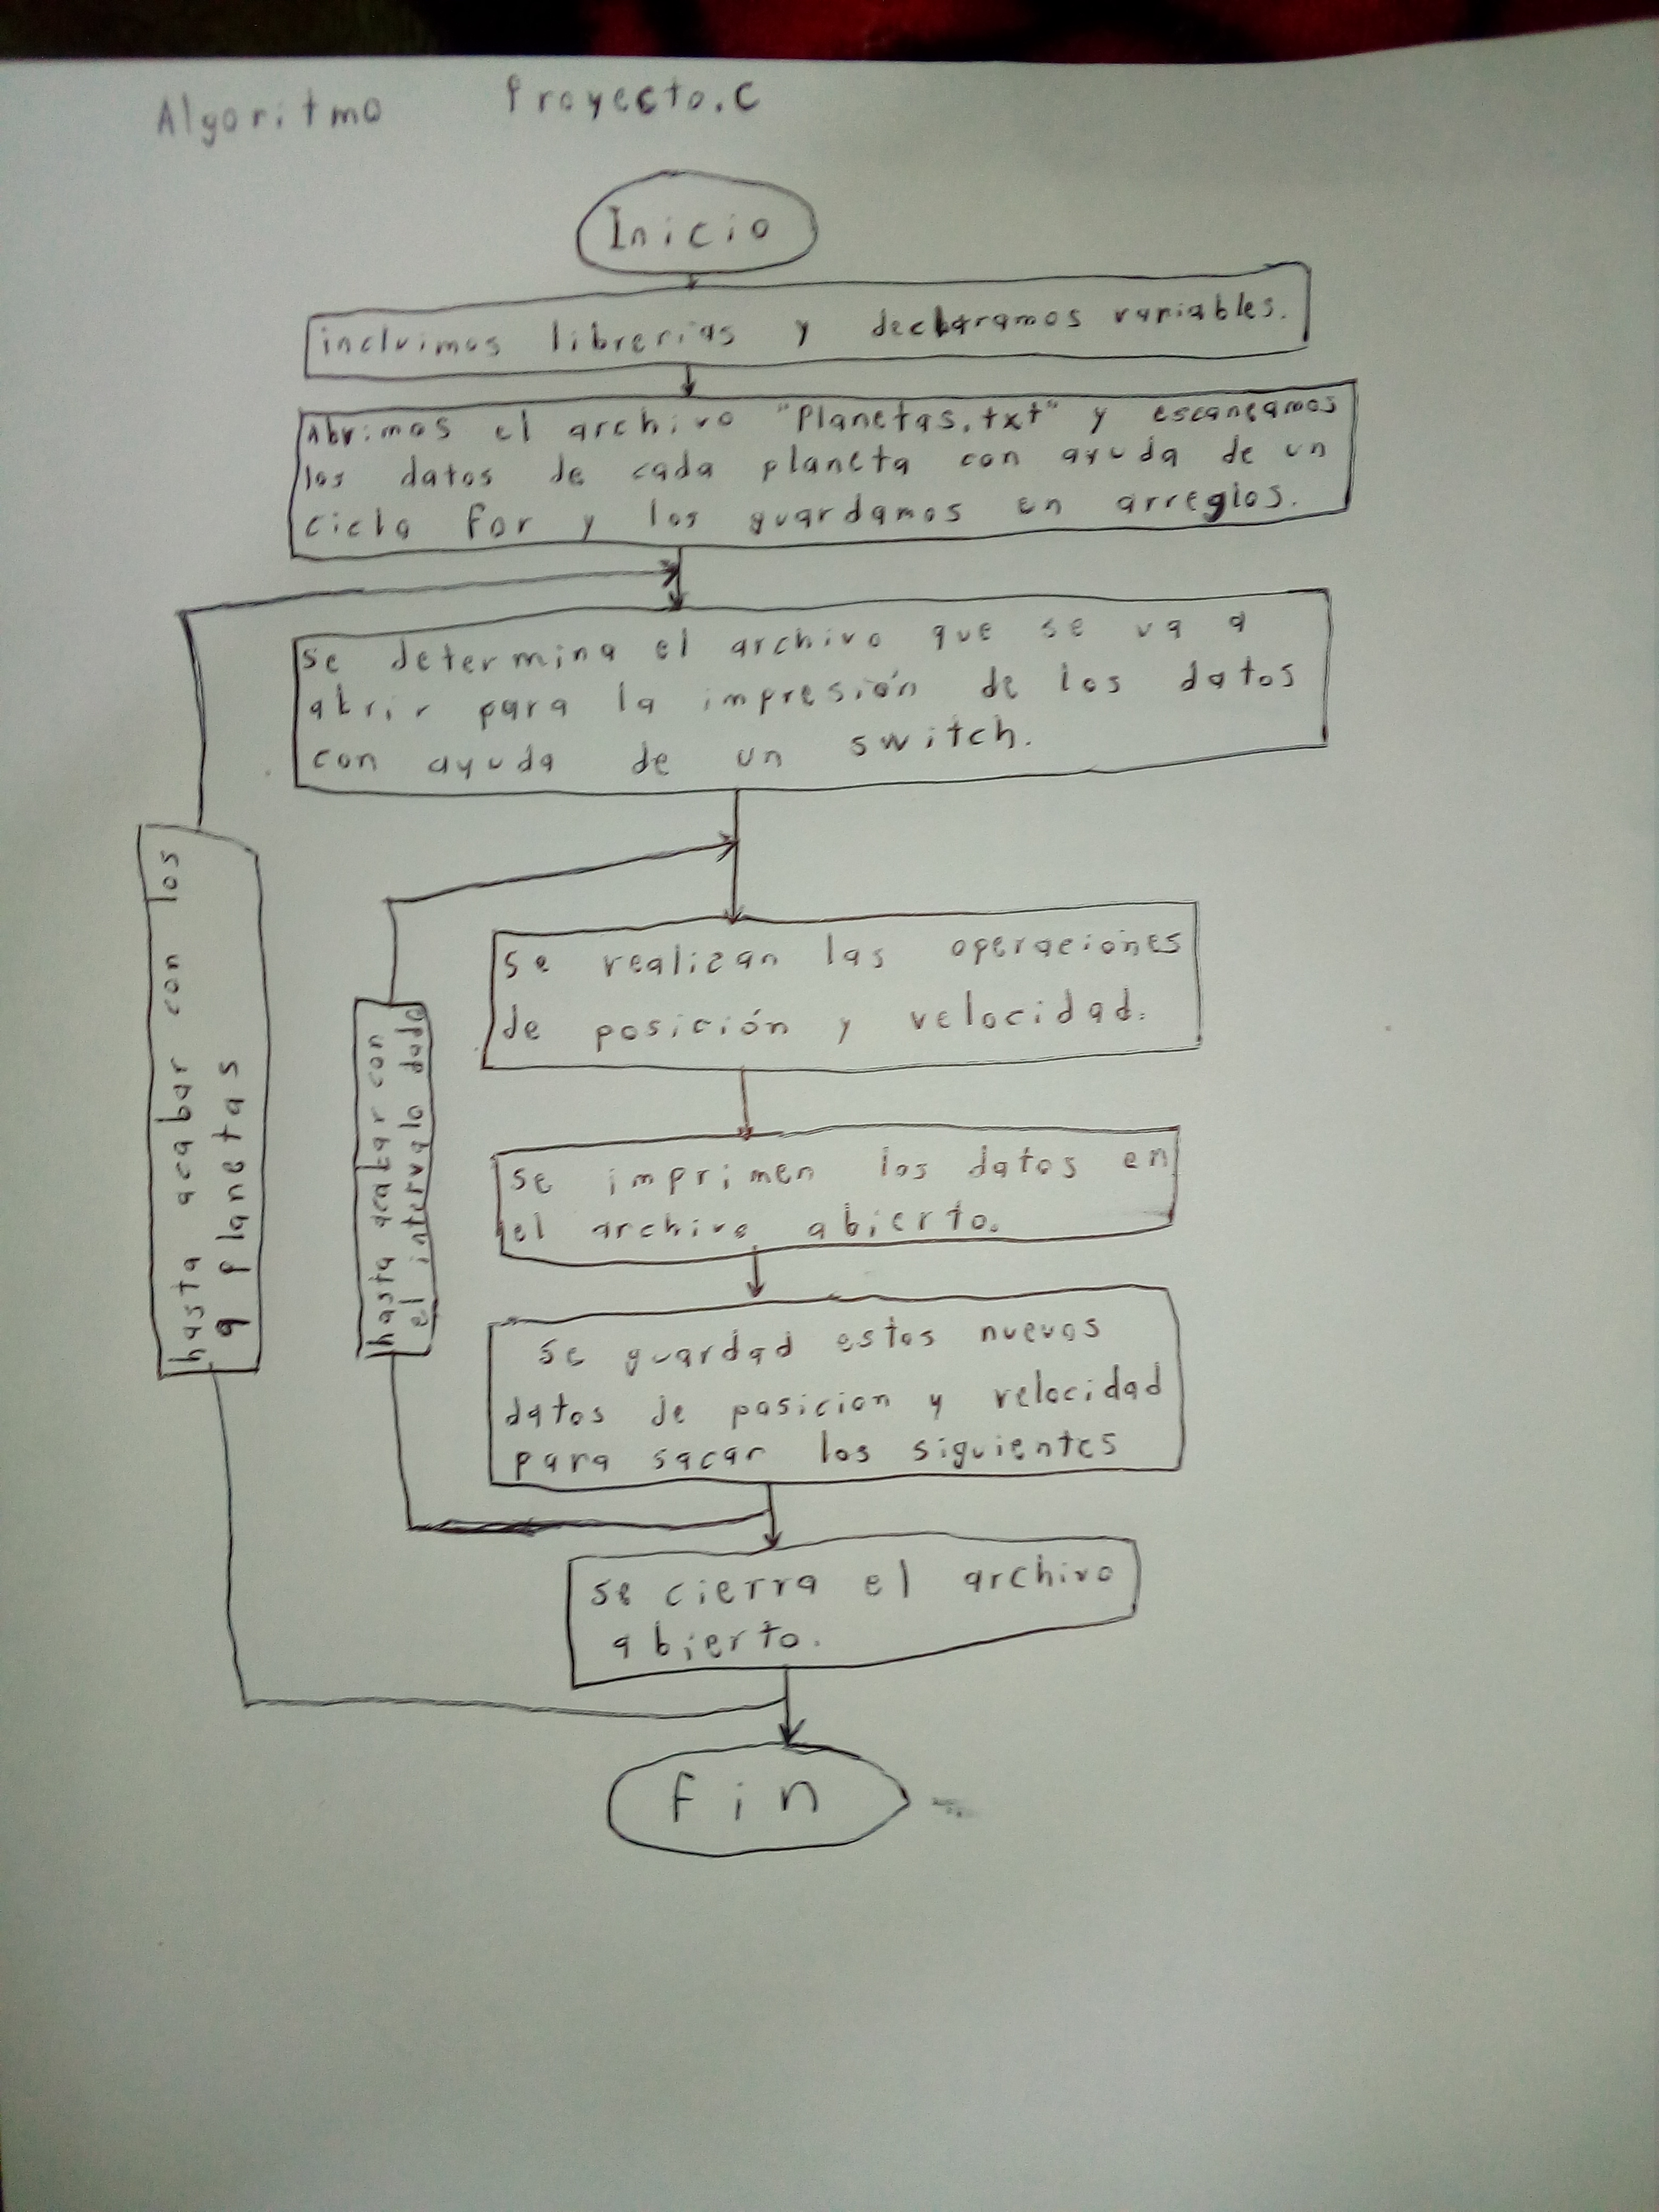 Algoritmo Proyecto.c
Inicio
incluimos librerias y declaramos variables.
Abrimos el archivo "Planetas.txt" y escaneamos
los datos de cada planeta con ayuda de un
ciclo for y los guardamos en arreglos.
se determina el archivo que se va a
abrir para la impresión de los datos
con ayuda de un switch.
hasta acabar con los
9 planetas
hasta acabar con
el intervalo dado
se realizan las operaciones
de posición y velocidad.
se imprimen los datos en
el archivo abierto.
se guardad estos nuevos
datos de posicion y velocidad
para sacar los siguientes
se cierra el archivo
abierto.
fin